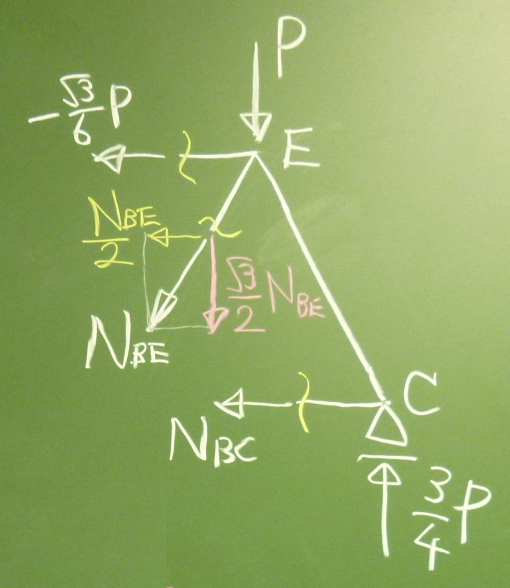 P
-√3/6 P
E
N_BE/2
√3/2 N_BE
N_BE
C
N_BC
3/4 P